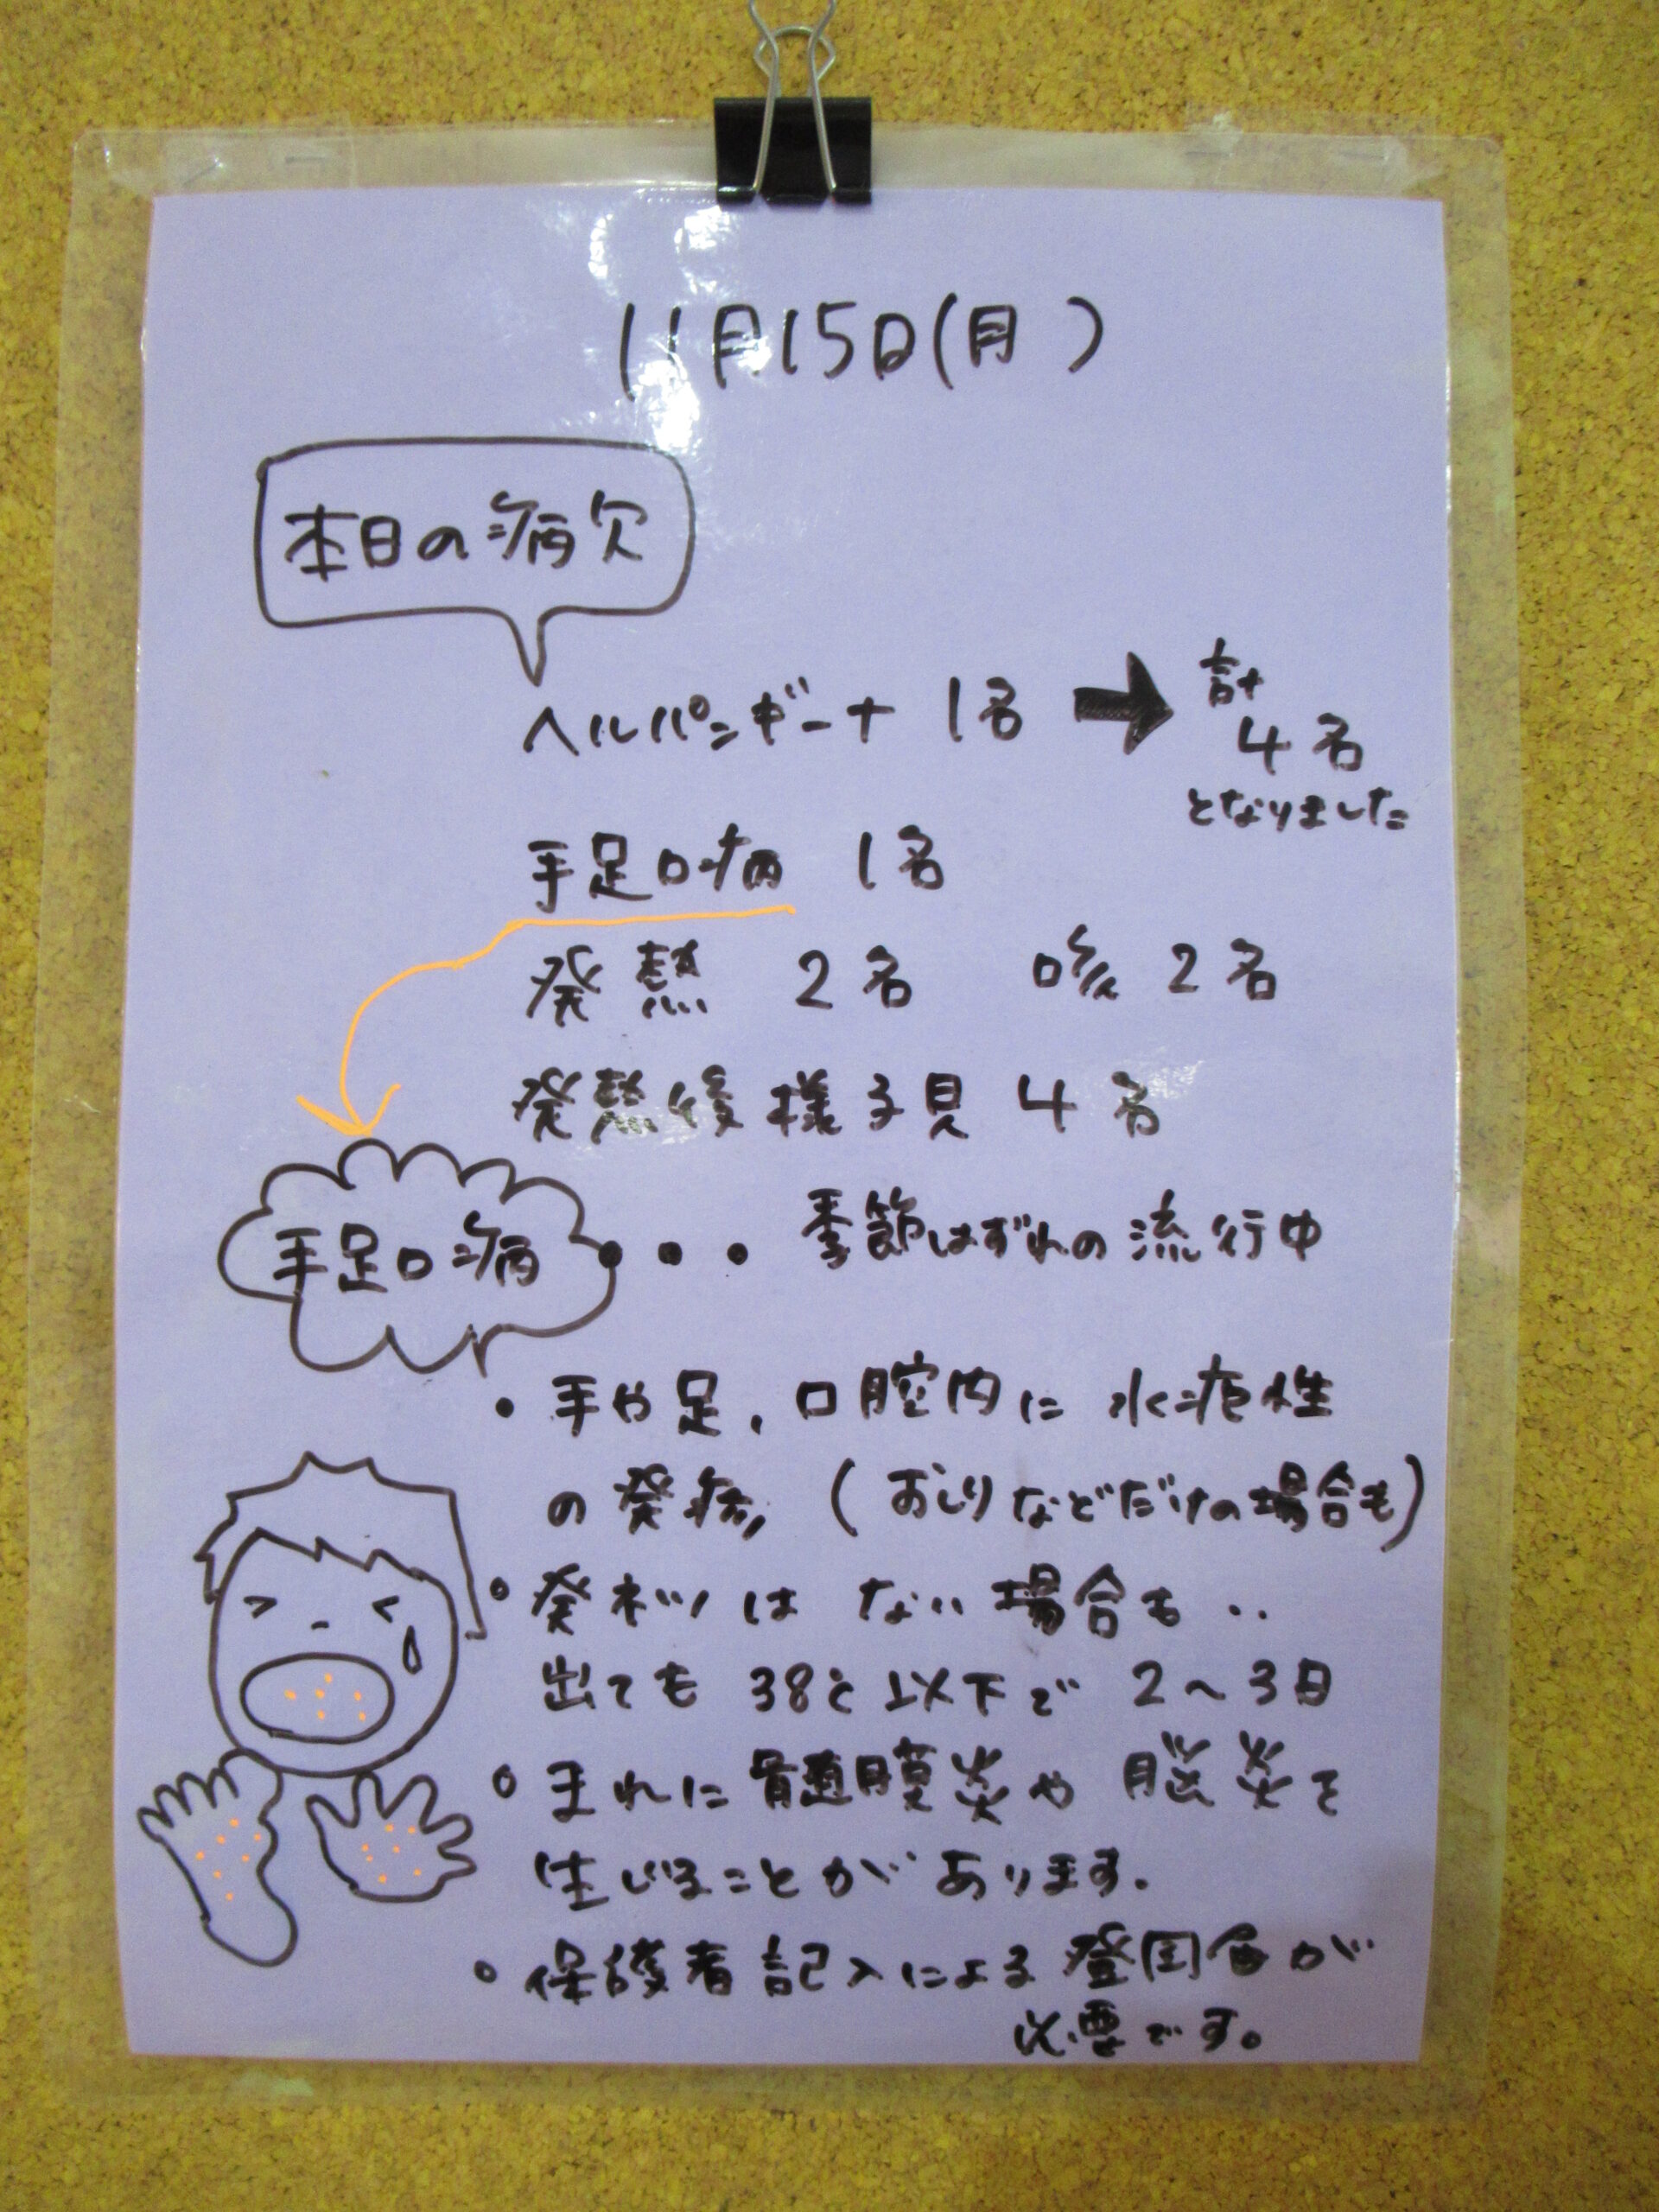 11月15日(月)
本日の病欠
ヘルパンギーナ 1名 ➡ 計
4名
となりました
手足口病 1名
発熱 2名 咳 2名
発熱後様子見 4名
手足口病 ・・・ 季節はずれの流行中
・手や足、口腔内に水疱性
の発疹 (おしりなどだけの場合も)
・発ネツはない場合も‥
出ても38℃以下で2〜3日
・まれに髄膜炎や脳炎を
生じることがあります.
・保護者記入による登園届が
必要です。